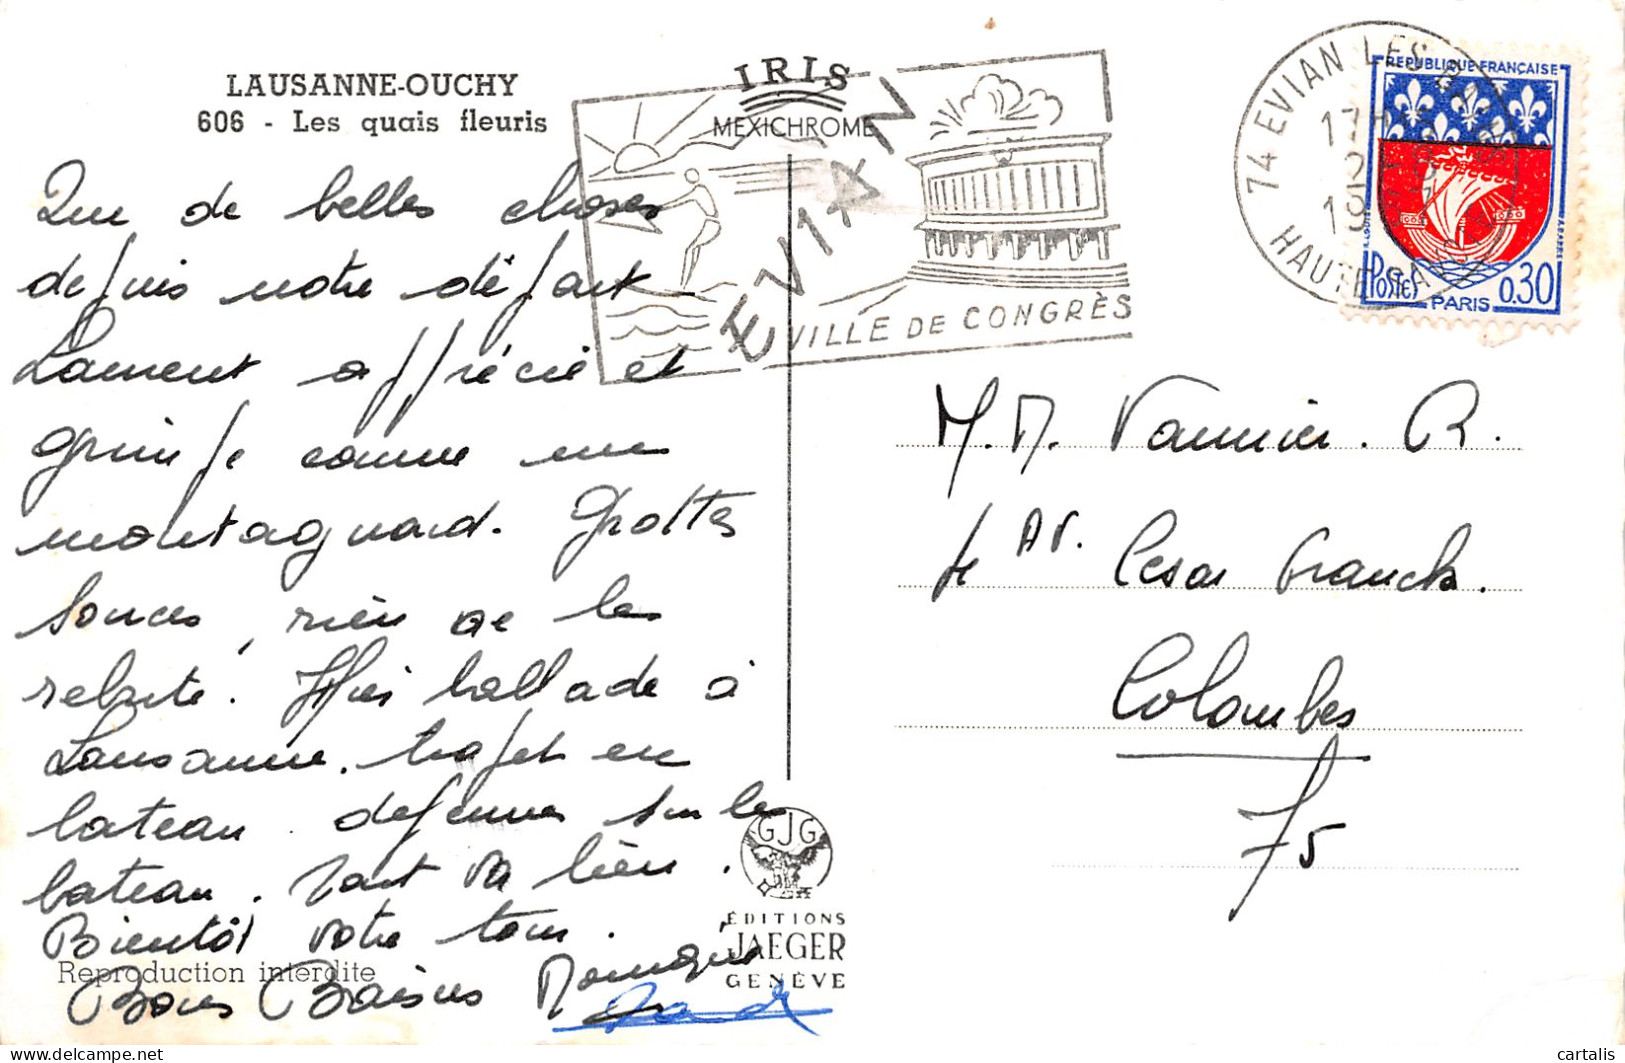 LAUSANNE-OUCHY
606 - Les quais fleuris
IRIS
MEXICHROME
EVIAN
VILLE DE CONGRÈS
74 EVIAN LES BAINS
17H
19
HAUTE SAVOIE
REPUBLIQUE FRANÇAISE
POSTES
PARIS
0.30
Que de belles choses
depuis notre départ
Laurent apprécie et
grimpe comme un
montagnard. Grottes
sources, rien ne les
rebute. Hier ballade à
Lausanne. trajet en
bateau. dejeuner sur le
bateau. Tout va bien.
Bientôt votre tour.
Bons Baisers Monique
M. M. Vannier. R.
Av. Cesar Franck.
Colombes
75
GJG
ÉDITIONS
JAEGER
GENÈVE
Reproduction interdite
cartalis
delcampe.net